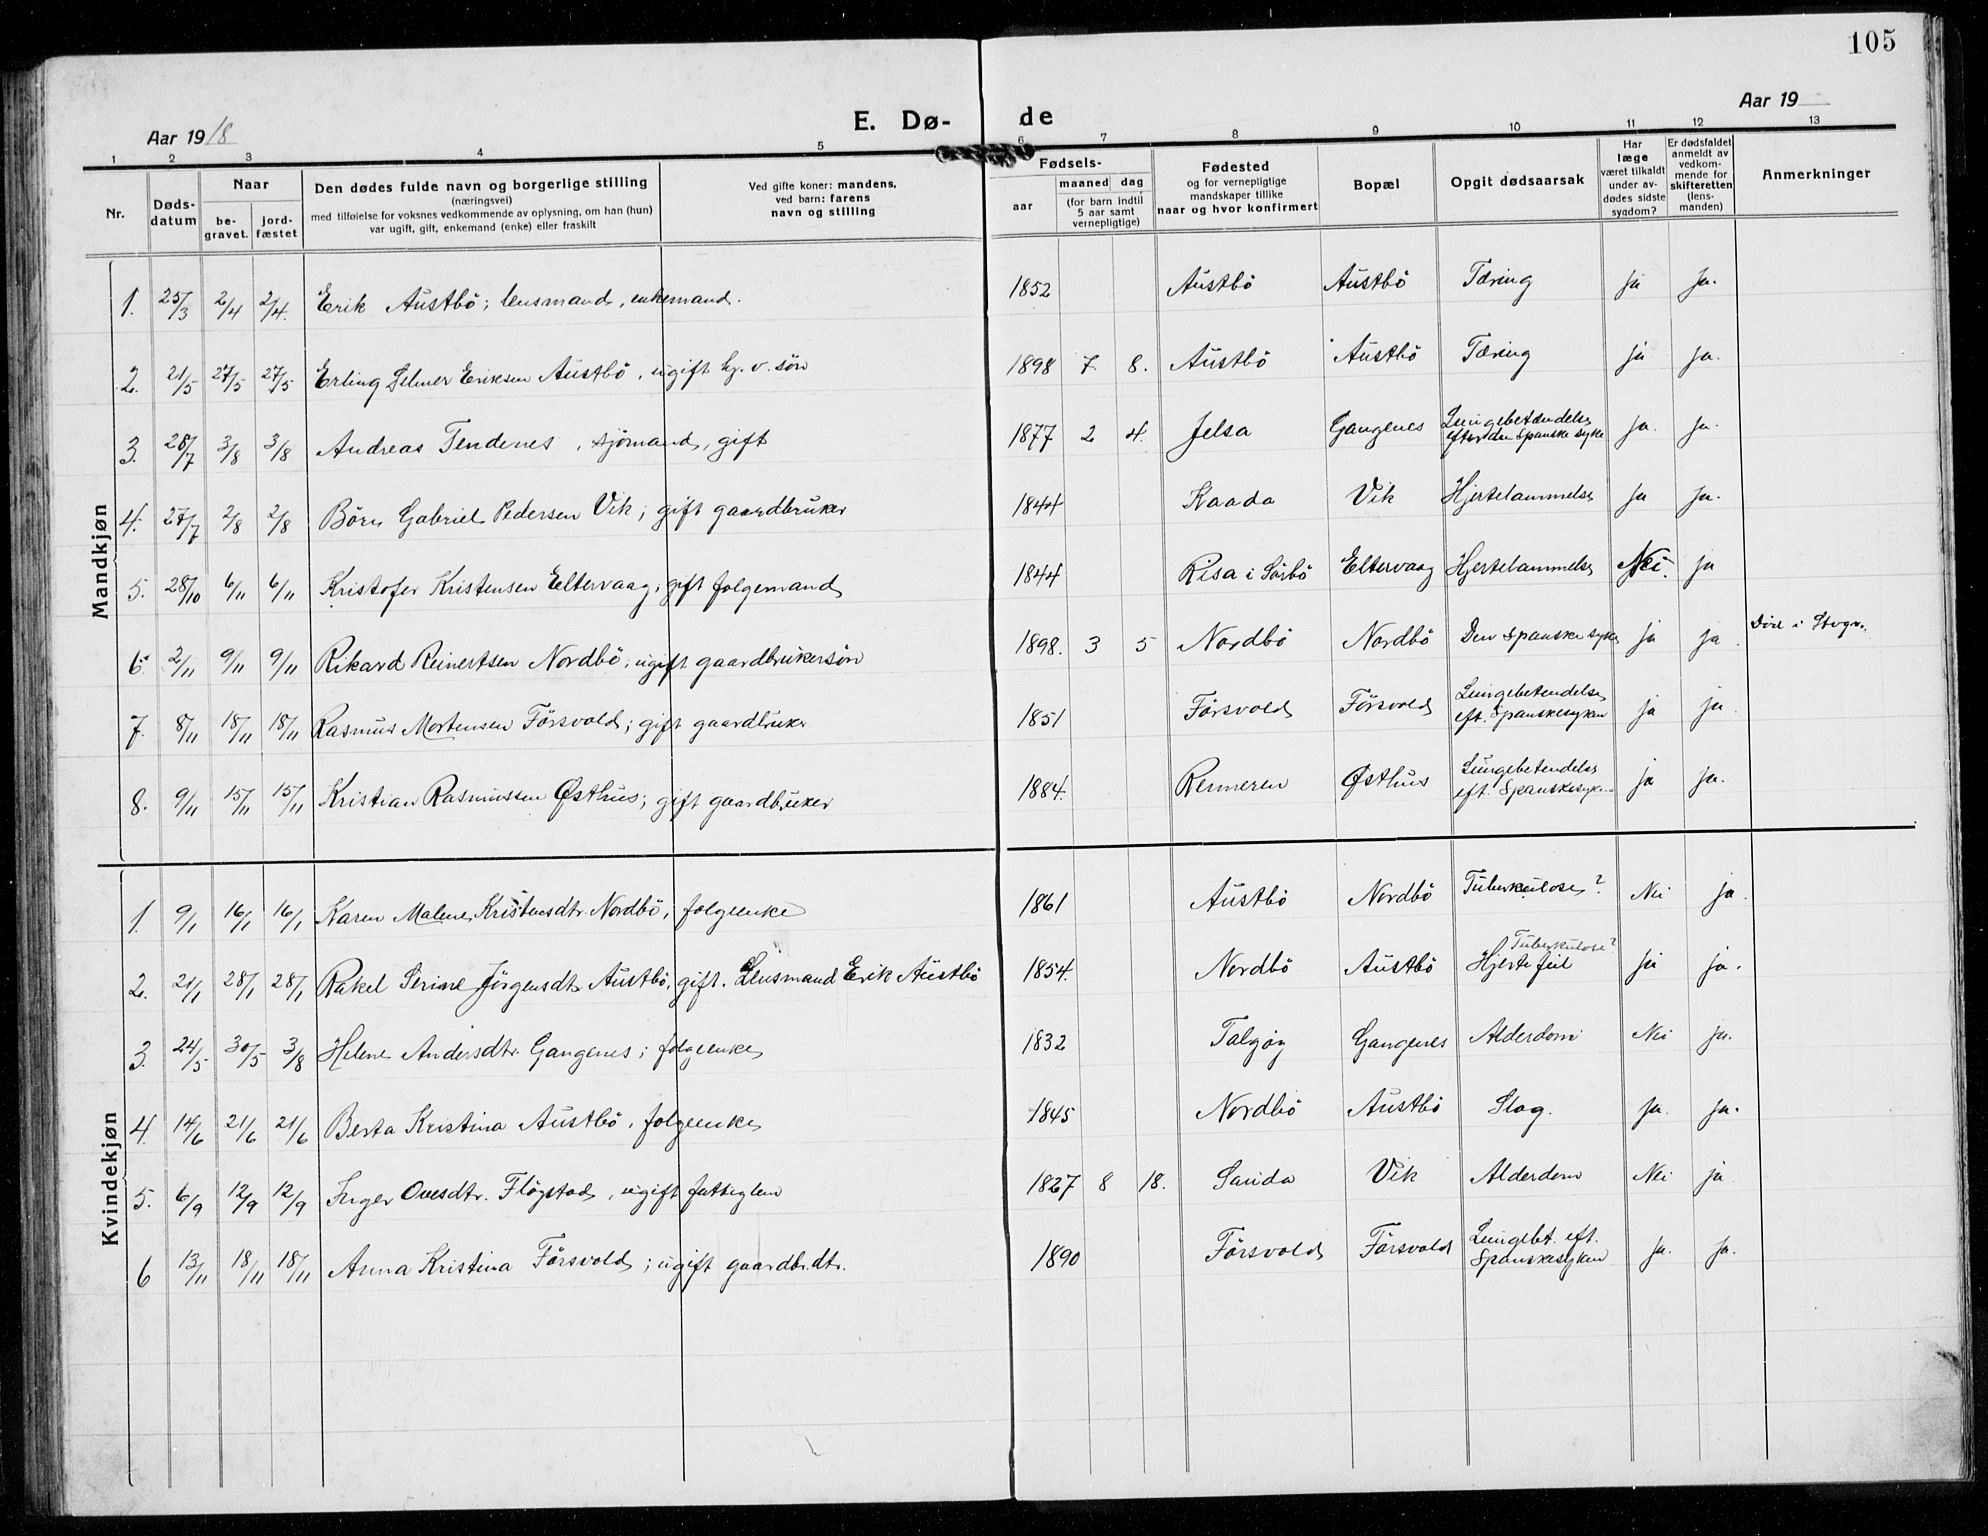 105
Aar 1918
E. Dø- de
Aar 19
1 2 3 4 5 6 7 8 9 10 11 12 13
Nr.
Døds-
datum
Naar
be-
gravet.
jord-
fæstet
Den dødes fulde navn og borgerlige stilling
(næringsvei)
med tilføielse for voksnes vedkommende av oplysning, om han (hun)
var ugift, gift, enkemand (enke) eller fraskilt
Ved gifte koner: mandens,
ved barn: farens
navn og stilling
Fødsels-
aar
maaned dag
(for barn indtil
5 aar samt
vernepligtige)
Fødested
og for vernepligtige
mandskaper tillike
naar og hvor konfirmert
Bopæl
Opgit dødsaarsak
Har
læge
været tilkaldt
under av-
dødes sidste
sygdom?
Er dødsfaldet
anmeldt av
vedkom-
mende for
skifteretten
(lens-
manden)
Anmerkninger
Mandkjøn
1. 25/3 2/4 2/4. Erik Austbö; lensmand, enkemand. 1852 Austbö Austbö Tæring ja ja.
2. 21/5 27/5 27/5 Erling Selmer Eriksen Austbö, ugift hj. v. sön 1898 7. 8. Austbö Austbö Tæring ja ja.
3. 28/7 3/8 3/8 Andreas Tendenes, sjömand, gift 1877 2 4. Jelsa Gangenes Lungebetændelse
efter den Spanske syke ja. ja.
4. 27/7 2/8 2/8 Börn Gabriel Pedersen Vik; gift gaardbruker 1844 Kaada Vik Hjertelammelse ja ja.
5. 28/10 6/11 6/11 Kristofer Kristensen Eltervaag; gift folgemand 1844 Risa i Sörbö Eltervaag Hjertelammelse Nei. ja
6. 2/11 9/11 9/11 Rikard Reinertsen Nordbö; ugift gaardbrukersön 1898. 3 5 Nordbö Nordbö Den Spanske syke ja ja. Död i
7. 8/11 18/11 18/11 Rasmus Mortensen Försvold; gift gaardbruker 1851 Försvold Försvold Lungebetendelse
eft. Spanskesyken ja ja.
8. 9/11 15/11 15/11 Kristian Rasmussen Østhus; gift gaardbruker 1884. Renneren Østhus Lungebetendelse
eft. Spanskesyken ja ja.
Kvindekjøn
1. 9/1 16/1 16/1 Karen Malene Kristensdtr. Nordbö, folgeenke 1861 Austbö Nordbö Tuberkulose? Nei ja.
2. 21/1 28/1 28/1 Rakel Serine Jörgensdtr Austbö, gift. Lensmand Erik Austbö 1854. Nordbö Austbö Tuberkulose?
Hjertefeil ja ja.
3. 24/5 30/5 3/8 Helene Andersdtr. Gangenes; folgeenke 1832 Talgöy Gangenes Alderdom Nei ja.
4. 14/6 21/6 21/6 Berta Kristina Austbö, folgeenke 1845 Nordbö Austbö Slag. ja. ja.
5. 6/9 12/9 12/9 Inger Ovesdtr. Flögstad, ugift fattiglem 1827 8 18. Sauda Vik Alderdom Nei ja
6 13/11 18/11 18/11 Anna Kristina Försvold; ugift gaardbr.dtr. 1890 Försvold Försvold Lungebt. eft.
Spanskesyken ja. ja.